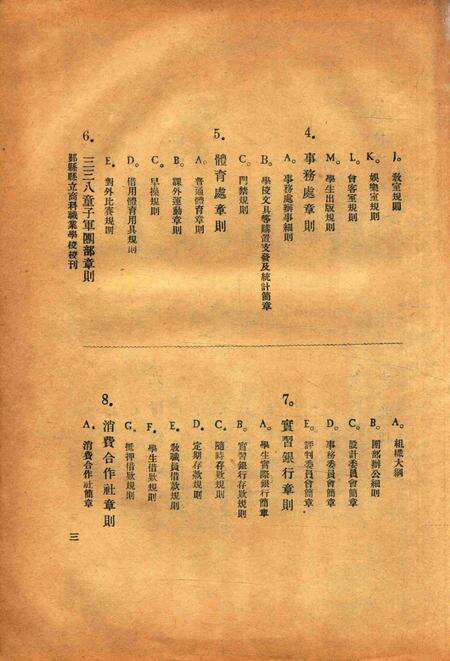 J。教室規則
K。娛樂室規則
L。會客室規則
M。學生出版規則
4。事務處章則
A。事務處辦事細則
B。學校文具等購置支發及統計簡章
C。門禁規則
5。體育處章則
A。普通體育章則
B。課外運動章則
C。早操規則
D。借用體育用具規則
E。對外比賽規則
6。三二八童子軍團部章則
鄞縣縣立商科職業學校校刊
A。組織大綱
B。團部辦公細則
C。設計委員會簡章
D。事務委員會簡章
E。評判委員會簡章
7。實習銀行章則
A。學生實習銀行簡章
B。實習銀行存款規則
C。隨時存款規則
D。定期存款規則
E。教職員借款規則
F。學生借款規則
G。抵押借款規則
8。消費合作社章則
A。消費合作社簡章
三